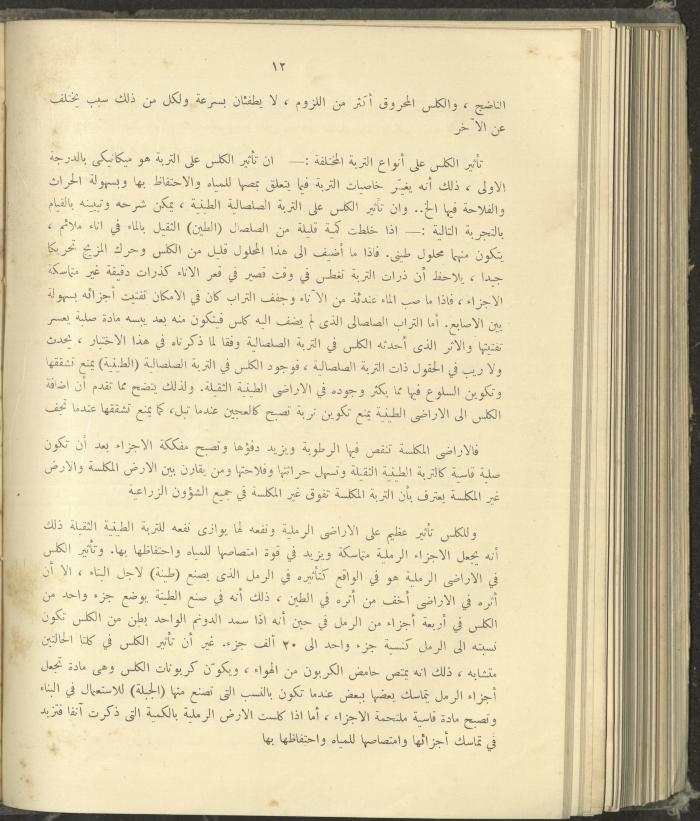 ١٢
الناضج ، والكلس المحروق أكثر من اللزوم ، لا يطفئان بسرعة ولكل من ذلك سبب يختلف
عن الآخر
تأثير الكلس على أنواع التربة المختلفة :— ان تأثير الكلس على التربة هو ميكانيكى بالدرجة
الاولى ، ذلك أنه يغيّر خاصيات التربة فيما يتعلق بمصها للمياه والاحتفاظ بها وبسهولة الحراث
والفلاحة فيها الخ.. وان تأثير الكلس على التربة الصلصالية الطينية ، يمكن شرحه وتبيينه بالقيام
بالتجربة التالية :— اذا خلطت كمية قليلة من الصلصال (الطين) الثقيل بالماء في اناء ملائم ،
يتكون منهما محلول طيني. فاذا ما أضيف الى هذا المحلول قليل من الكلس وحرك المزيج تحريكا
جيدا ، يلاحظ أن ذرات التربة تغطس في وقت قصير في قعر الاناء كذرات دقيقة غير متماسكة
الاجزاء ، فاذا ما صب الماء عندئذ من الاناء وجفف التراب كان في الامكان تفتيت أجزائه بسهولة
بين الاصابع. أما التراب الصلصالى الذى لم يضف اليه كلس فيتكون منه بعد يبسه مادة صلبة يعسر
تفتيتها والاثر الذى أحدثه الكلس في التربة الصلصالية وفقا لما ذكرناه في هذا الاختبار ، يحدث
ولا ريب في الحقول ذات التربة الصلصالية ، فوجود الكلس في التربة الصلصالية (الطينية) يمنع تشققها
وتكوين السلوع فيها مما يكثر وجوده في الاراضى الطينية الثقيلة. ولذلك يتضح مما تقدم أن اضافة
الكلس الى الاراضى الطينية يمنع تكوين تربة تصبح كالعجين عندما تبل، كما يمنع تشققها عندما تجف
فالاراضى المكلسة تنقص فيها الرطوبة ويزيد دفؤها وتصبح مفككة الاجزاء بعد أن تكون
صلبة قاسية كالتربة الطينية الثقيلة وتسهل حراثتها وفلاحتها ومن يقارن بين الارض المكلسة والارض
غير المكلسة يعترف بأن التربة المكلسة تفوق غير المكلسة في جميع الشؤون الزراعية
وللكلس تأثير عظيم على الاراضى الرملية ونفعه لها يوازى نفعه للتربة الطينية الثقيلة ذلك
أنه يجعل الاجزاء الرملية متماسكة ويزيد في قوة امتصاصها للمياه واحتفاظها بها. وتأثير الكلس
في الاراضى الرملية هو في الواقع كتأثيره في الرمل الذى يصنع (طينة) لاجل البناء ، الا أن
أثره في الاراضى أخف من أثره في الطين ، ذلك أنه في صنع الطينة يوضع جزء واحد من
الكلس في أربعة أجزاء من الرمل في حين أنه اذا سمد الدونم الواحد بطن من الكلس تكون
نسبته الى الرمل كنسبة جزء واحد الى ٢٠ ألف جزء. غير أن تأثير الكلس في كلتا الحالتين
متشابه ، ذلك انه يمتص حامض الكربون من الهواء ، ويكوّن كربونات الكلس وهى مادة تجعل
أجزاء الرمل يتماسك بعضها ببعض عندما تكون بالنسب التى تصنع منها (الجبلة) للاستعمال في البناء
وتصبح مادة قاسية ملتحمة الاجزاء ، أما اذا كلست الارض الرملية بالكمية التى ذكرت آنفا فتزيد
في تماسك أجزائها وامتصاصها للمياه واحتفاظها بها